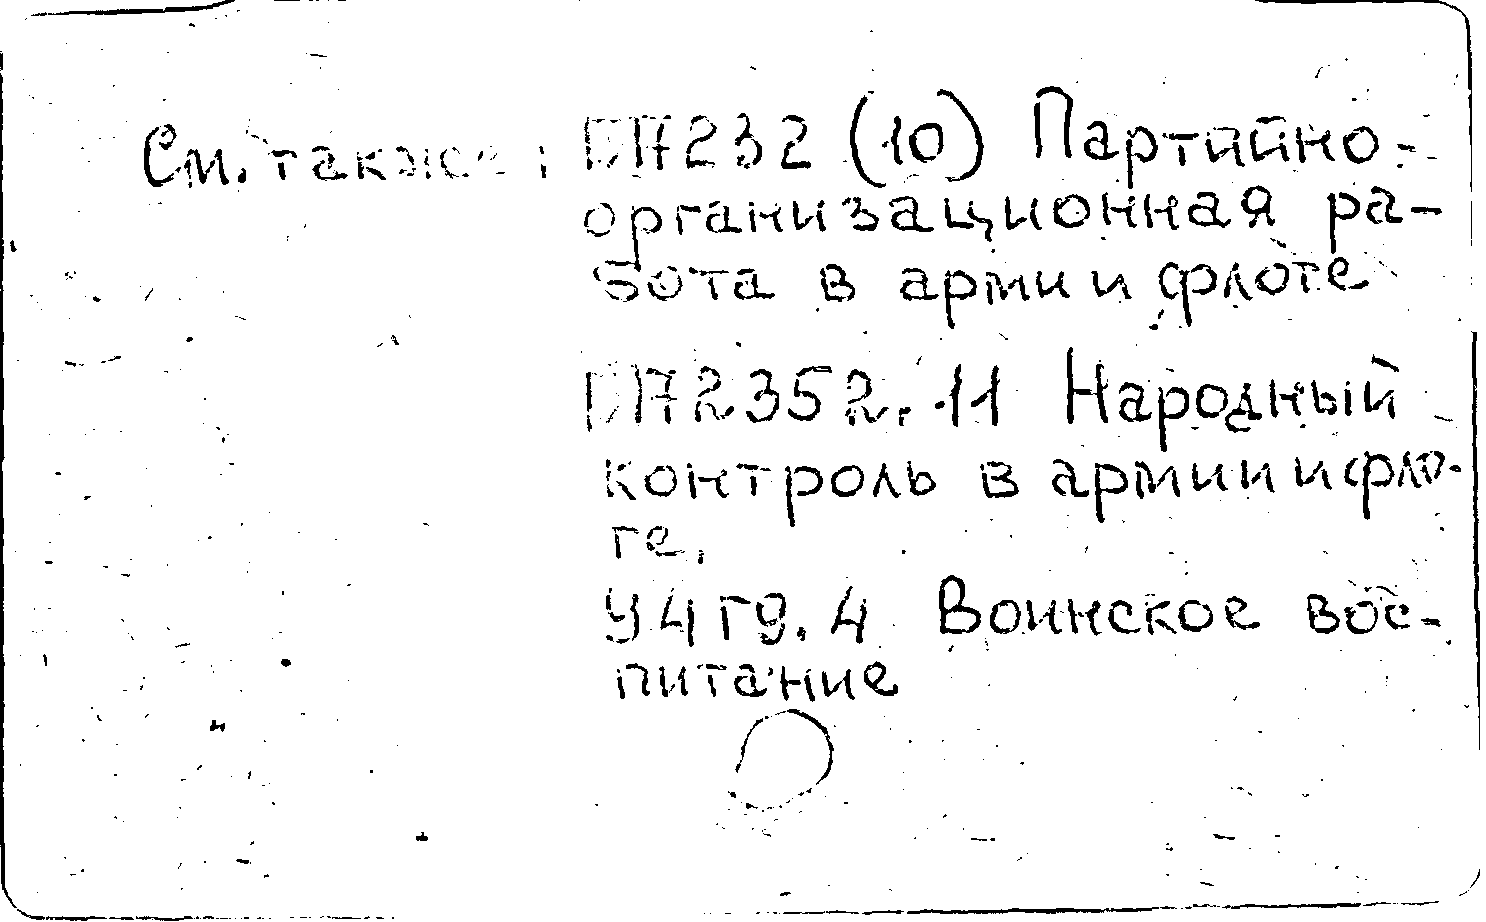 См. также: П7232 (10) Партийно-
организационная ра-
бота в арми и флоте
П72352.11 Народный
контроль в армии и фло-
те.
У4гд.4 Воинское вос-
питание